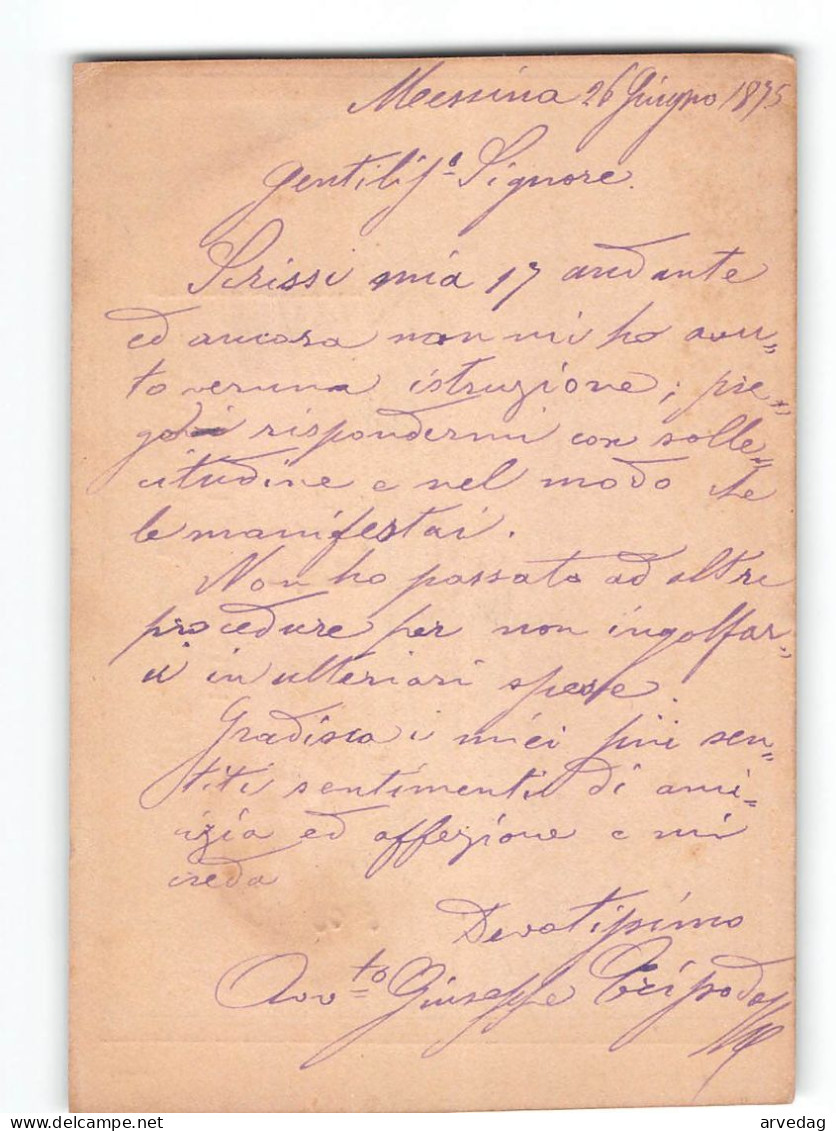 Messina 26 Giugno 1875
Gentiliss.o Signore.
Scrissi mia 17 andante
ed ancora non mi ho avu=
to veruna istruzione; pre=
golo rispondermi con solle=
citudine e nel modo che
le manifestai.
Non ho passato ad altre
procedure per non ingolfar=
ci in ulteriori spese.
Gradisca i miei più sen=
titi sentimenti di ami=
cizia ed affezione e mi
creda
Devotissimo
Avv.to Giuseppe Tripodo
delcampe.net
arvedag